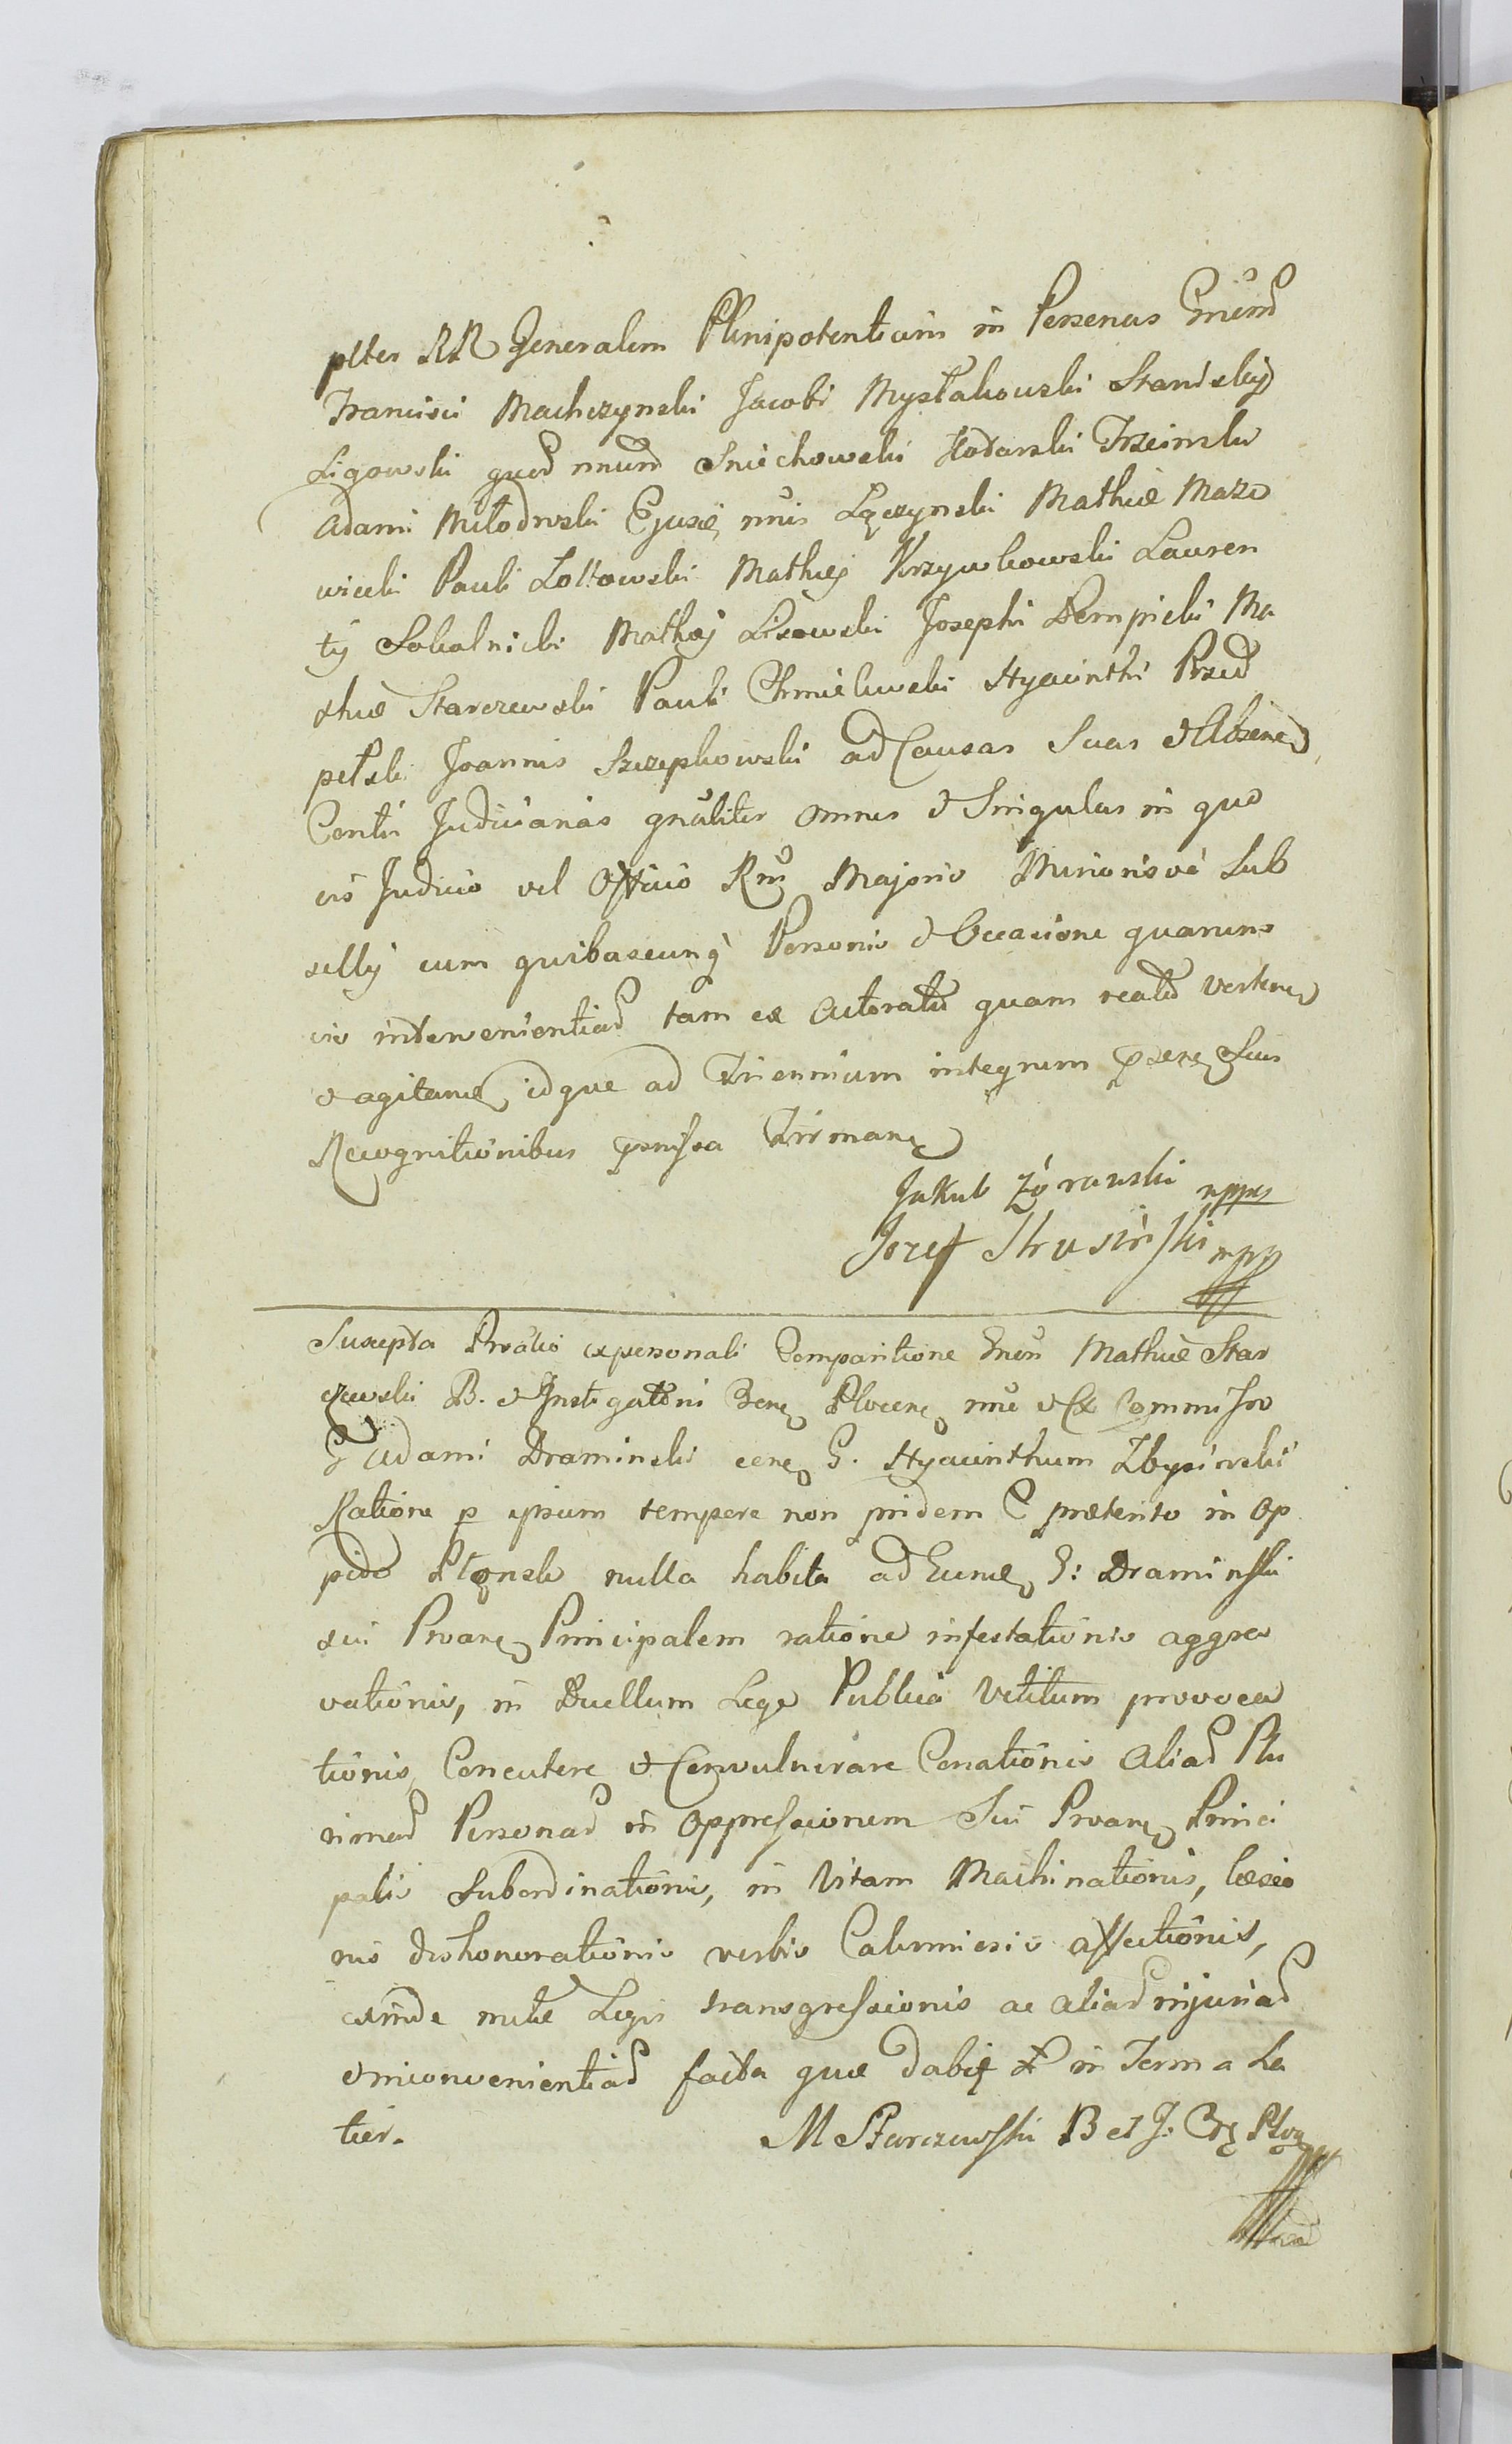 pltes RR Generalem Plenipotentiam in Personas Gnerum
Francisci Machczynski Jacobi Mysłakowski Stanislaj
Ligowski quod nnum Sniechowski Kodarski Trzcinski
Adami Młodowski Ejusd nnis Łączynski Mathiæ Mazo
wiecki Pauli Zołtowski Mathiæ Krzywkowski Lauren
tij Sokolnicki Mathæj Lisowski Josephi Dempicki Ma
thiæ Starczewski Pauli Chmielewski Hyacinthi Przed
pełski Joannis Szczepkowski ad Causas Suas & Absene
Contú Judicianas gnaliter omnes & Singulas in quo
vis Judicio vel Officio Rni Majoris Minorisvè Sub
sellij cum quibascunq Personis & Occasione quarum
vis intervenientiad tam ex Actoratu quam reatu vertene
& agitane, idque ad Triennium integrum psene Suis
Recognitionibus pmissa Firmane
Jakub Zórawski mppa
Jozef Strusiński mpp
Suscepta Protio ex personali Comparitione Gnen Mathiæ Star
czewski B. & Instigatoris Bene Plocene nnie & Ex Commisso
G Adami Draminski cone G. Hyacinthum Zbysinski
Ratione p ipsum tempore non pridem E præterito in Op
pido Płonsk nulla habita ad Eund G: Draminski
sui Protane Principalem ratione infestationis aggra
vationis, in Duellum Lege Publica Vetitum provoca
tionis Concutere & Convulnerare Conationis Aliad Plu
rimad Personad in Oppressionem Sui Protane Princi
palis Subordinationis, in Vitam Machinationis, læsio
nis dishonorationis verbis Calumniosis affectionis,
exinde multæ Legis transgressionis ac aliad injuriad
& inconvenientiad facta quæ dabit & in Term a La
tier.
M Starczewski B et J: Płoc